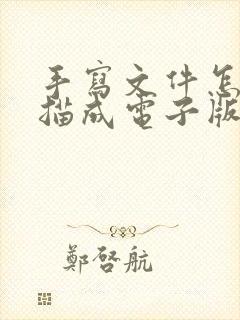 手寫文件怎
描成電子版
鄭啓航